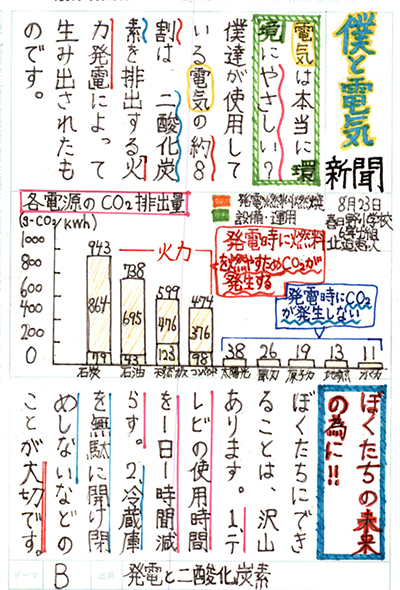 僕と電気
新聞
8月23日
電気は本当に環
境にやさしい?
僕達が使用して
いる電気の約8
割は、二酸化炭
素を排出する火
力発電によって
生み出されたも
のです。
各電源のCO₂排出量
発電燃料燃焼
設備・運用
(g-CO₂/kWh)
1000
800
600
400
200
0
火力
943
864
79
石炭
738
695
43
石油
599
476
123
474
376
98
38
太陽光
26
風力
19
原子力
13
地熱
11
水力
発電時に燃料
を燃やすためCO₂が
発生する
発電時にCO₂
が発生しない
ぼくたちの未来
の為に!!
ぼくたちにでき
ることは、沢山
あります。1、テ
レビの使用時間
を1日1時間減
らす。2、冷蔵庫
を無駄に開け閉
めしないなどの
ことが大切です。
テーマ
B
発電と二酸化炭素